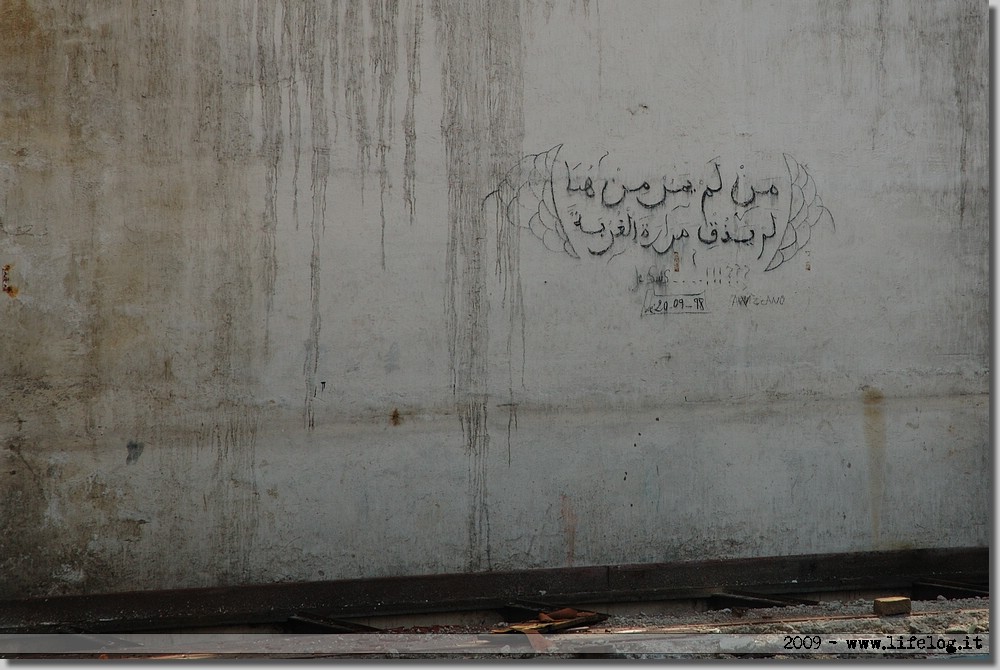 مِنْ لَم يَمُر مِن هُنَا
لم يَذُق مَرارة الغربةَ
Je Suis.....!!!???
20-09-98
2009 - www.lifelog.it